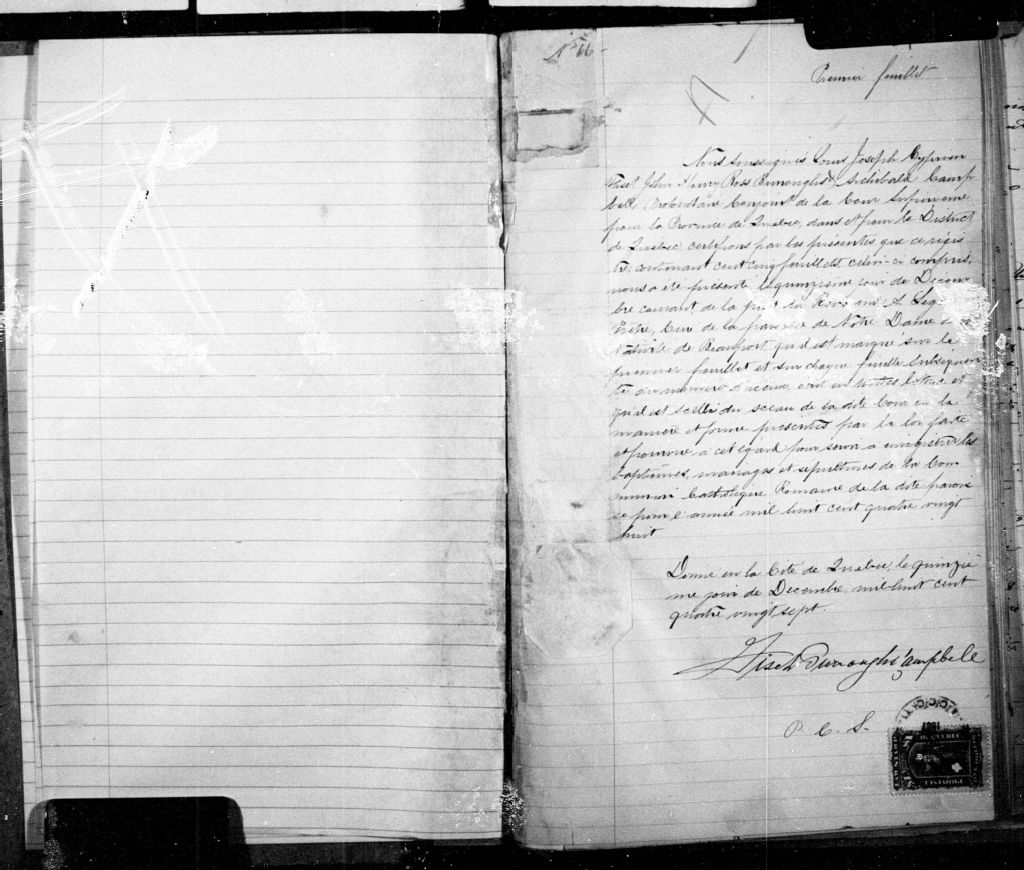 Nº 66-
Premier feuillet
Nous soussignés Louis Joseph Cyprien
Fiset, John Henry Ross Burroughs & Archibald Camp
bell Protonotaire Conjoint de la Cour Supérieure
pour la Province de Québec, dans et pour le District
de Québec, certifions par les présentes que ce régis
tre, contenant cent cinq feuillets celui-ci compris,
nous a été présenté le quinzième jour de Décem
bre courant de la part du Révd
Prêtre, Curé de la paroisse de Notre Dame
Nativité de Beauport, qu'il est marqué sur le
premier feuillet et sur chaque feuille subséquen
te du numéro d'iceux, écrit en toutes lettres et
qu'il est scellé du sceau de la dite Cour en la
manière et forme prescrites par la loi faite
et pourvue à cet égard pour servir à enregistrer les
baptêmes, mariages et sépultures de la Com
munion Catholique Romaine de la dite parois
se pour l'année mil huit cent quatre vingt
huit
Donné en la Cité de Québec, le quinziè
me jour de Décembre mil huit cent
quatre vingt sept.
Fiset Burroughs Campbell
P. C. S.
1887